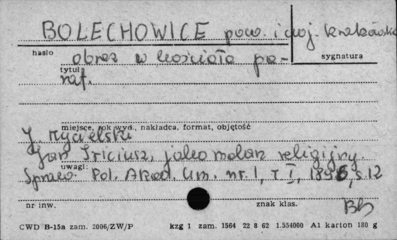 BOLECHOWICE pow. i woj. krakowskie
hasło
obraz w kościele pa-
tytuł
sygnatura
raf.
miejsce, rok wyd., nakładca, format, objętość
J. Mycielski
Jan Triciusz, jako malarz religijny.
uwagi
Spraw. Pol. Akad. Um. nr. 1, T. I, 1896, s. 12
nr inw.
znak klas.
CWD B-15a zam. 2006/ZW/P kzg 1 zam. 1564 22 8 62 1.354000 A1 karton 180 g